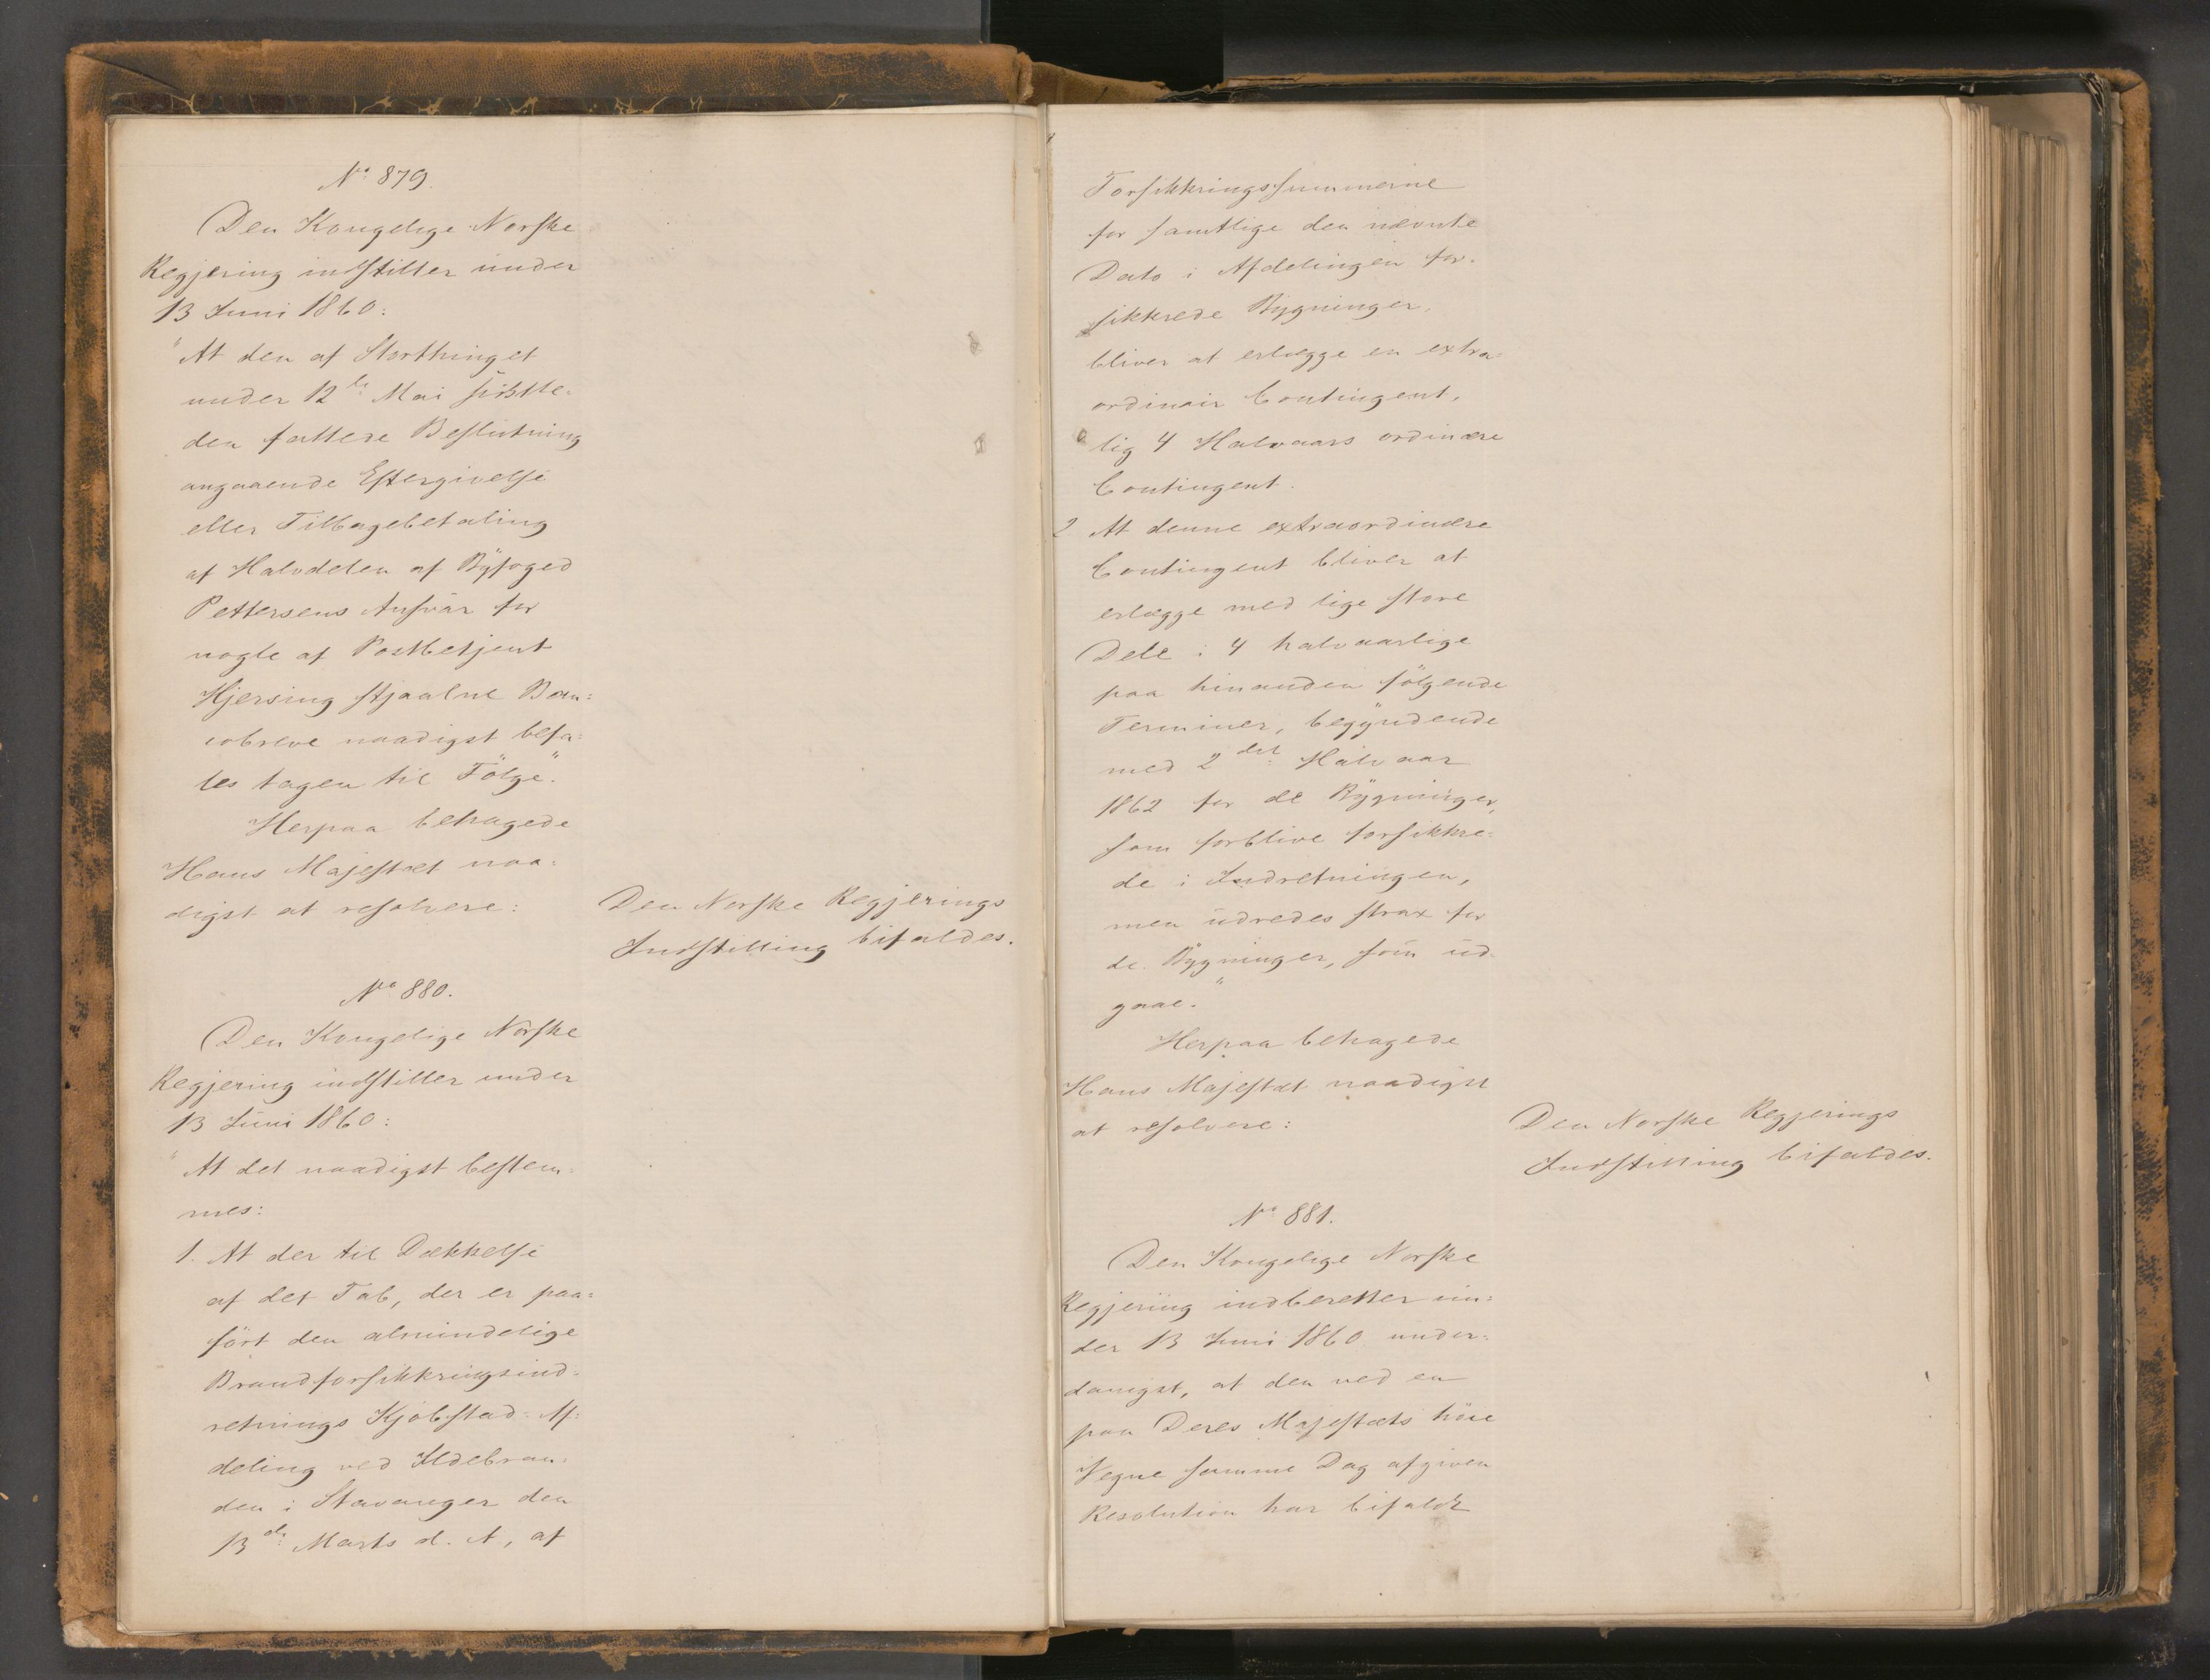 No 879.
Den Kongelige Norske
Regjering indstiller under
13 Juni 1860:
"At den af Storthinget
under 12te Mai sidstle-
den fattede Beslutning
angaaende Eftergivelse
eller Tilbagebetaling
af Halvdelen af Byfoged
Pettersens Ansvar for
nogle af Postbetjent
Hjersing stjaalne Ban=
cobreve naadigst befa=
les tagen til Fölge."
Herpaa behagede
Hans Majestæt naa=
digst at resolvere:
Den Norske Regjerings
Indstilling bifaldes.
No 880.
Den Kongelige Norske
Regjering indstiller under
13 Juni 1860:
"At det naadigst bestem=
mes:
1. At der til Dækkelse
af det Tab, der er paa=
fört den almindelige
Brandforsikkringsind-
retnings Kjöbstad-Af=
deling ved Ildebran-
den i Stavanger den
13de Marts d. A, af
Forsikkringssummerne
for samtlige den nævnte
Dato i Afdelingen for-
sikkrede Bygninger,
bliver at erlægge en extra=
ordinair Contingent,
lig 4 Halvaars ordinære
Contingent.
2 At denne extraordinære
Contingent bliver at
erlægge med lige store
Dele i 4 halvaarlige
paa hinanden fölgende
Terminer, begyndende
med 2det Halvaar
1862 for de Bygninger,
som forblive forsikkre-
de i Indretningen,
men udredes strax for
de Bygninger, som ud-
gaae."
Herpaa behagede
Hans Majestæt naadigst
at resolvere:
Den Norske Regjerings
Indstilling bifaldes.
No 881.
Den Kongelige Norske
Regjering indberetter un=
der 13 Juni 1860 under=
danigst, at den ved en
paa Deres Majestæts höie
Vegne samme Dag afgiven
Resolution har bifaldt